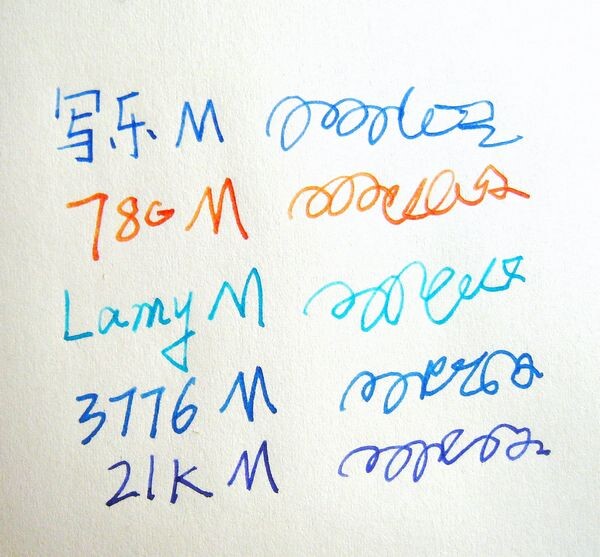 写乐 M
78G M
Lamy M
3776 M
21K M